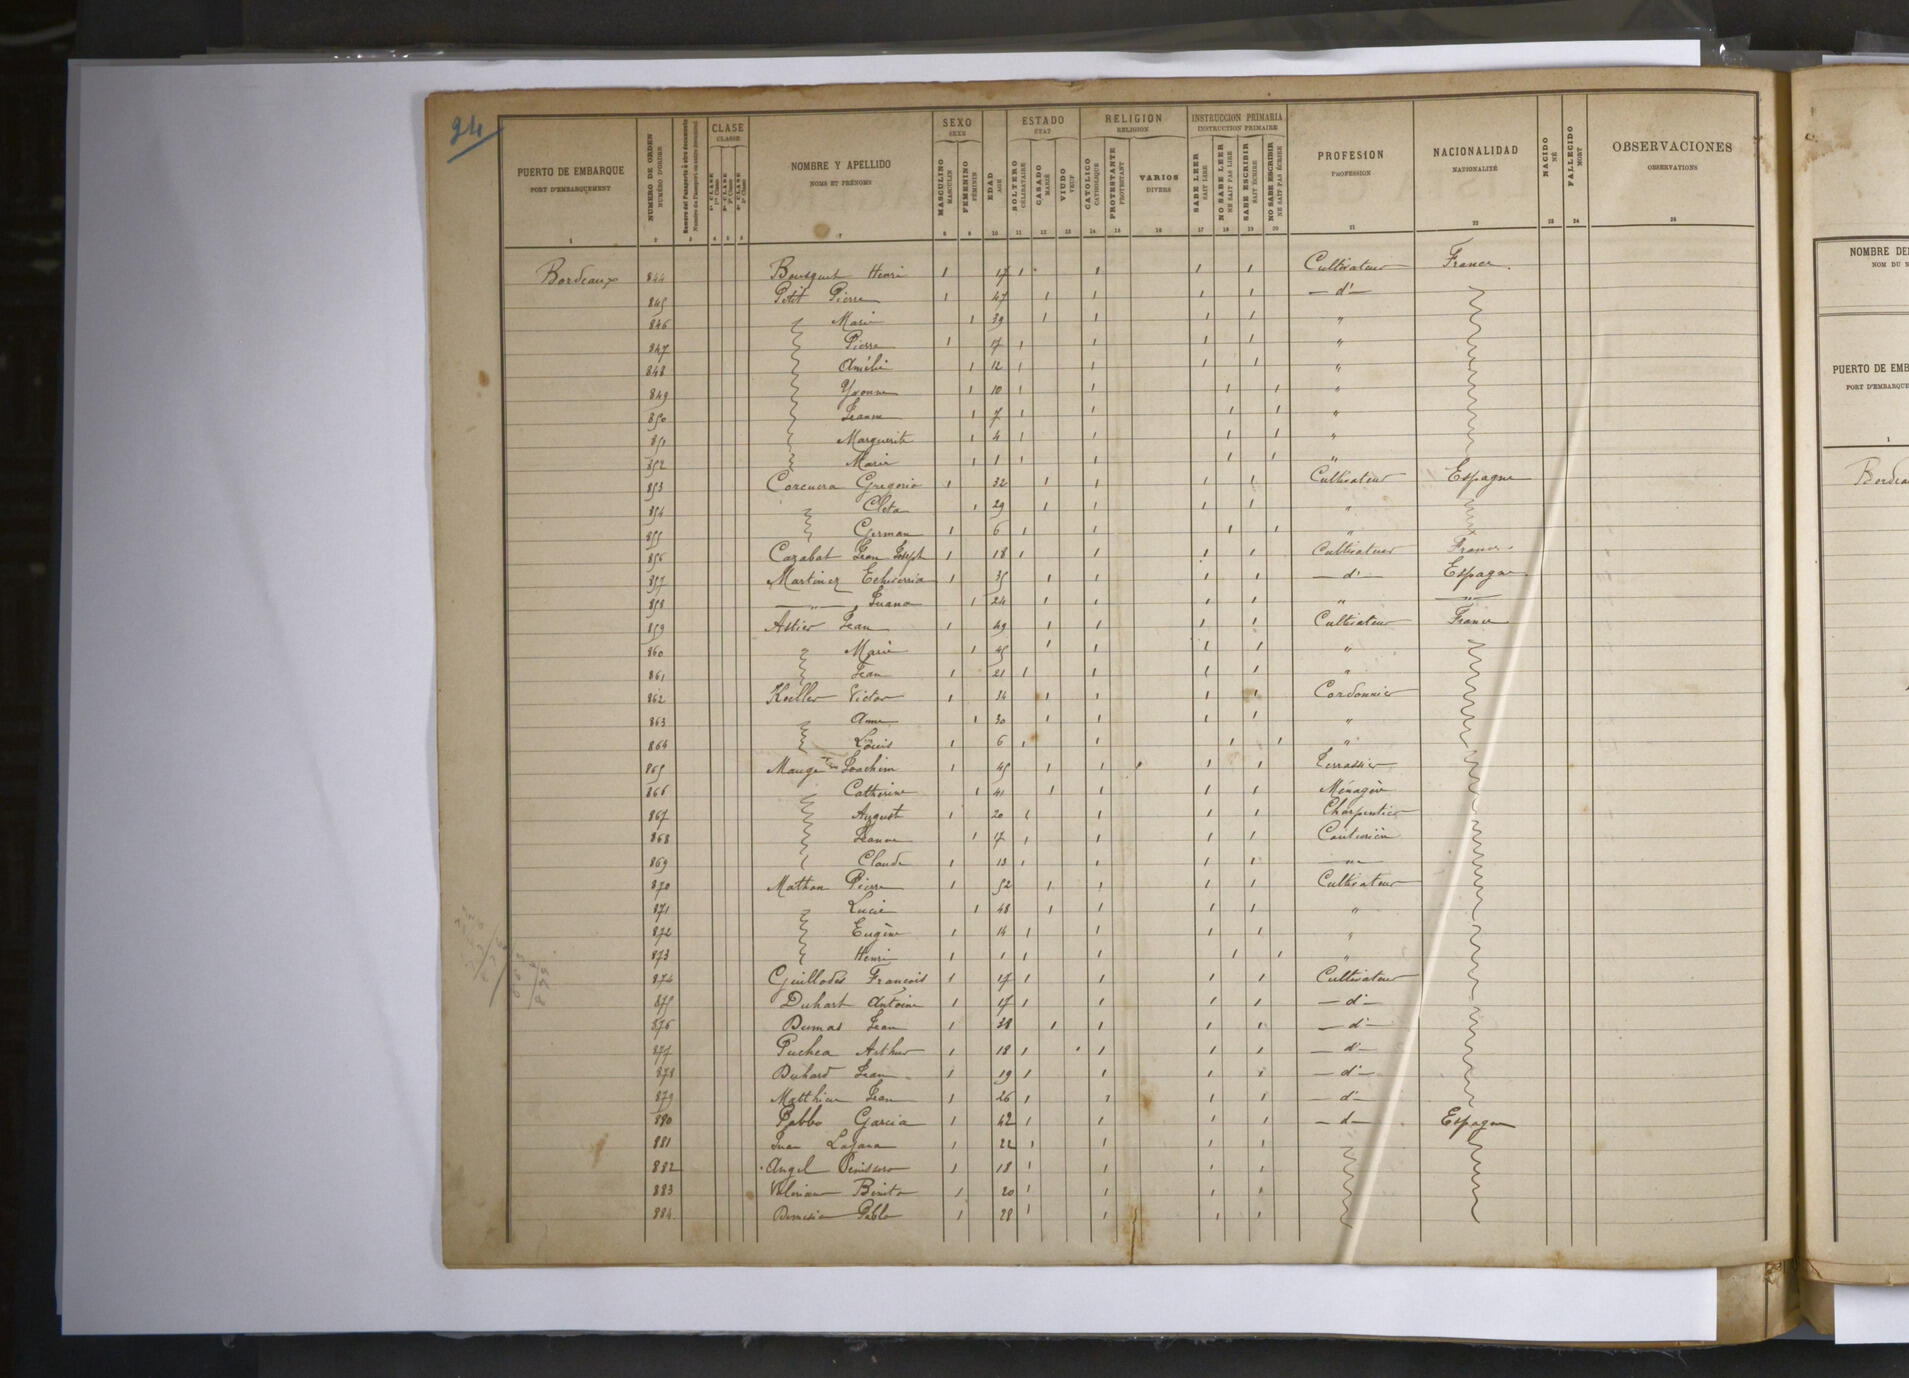 24
PUERTO DE EMBARQUE
PORT D'EMBARQUEMENT
NUMERO DE ORDEN
NUMÉRO D'ORDRE
CLASE
CLASSE
1ª CLASE
1re Classe
2ª CLASE
2e Classe
3ª CLASE
3e Classe
NOMBRE Y APELLIDO
NOMS ET PRÉNOMS
SEXO
SEXE
MASCULINO
MASCULIN
FEMENINO
FÉMININ
EDAD
AGE
ESTADO
ETAT
SOLTERO
CÉLIBATAIRE
CASADO
MARIÉ
VIUDO
VEUF
RELIGION
RELIGION
CATOLICO
CATHOLIQUE
PROTESTANTE
PROTESTANT
VARIOS
DIVERS
INSTRUCCION PRIMARIA
INSTRUCTION PRIMAIRE
SABE LEER
SAIT LIRE
NO SABE LEER
NE SAIT PAS LIRE
SABE ESCRIBIR
SAIT ÉCRIRE
NO SABE ESCRIBIR
NE SAIT PAS ÉCRIRE
PROFESION
PROFESSION
NACIONALIDAD
NATIONALITÉ
NACIDO
NÉ
FALLECIDO
MORT
OBSERVACIONES
OBSERVATIONS
1 2 3 4 5 6 7 8 9 10 11 12 13 14 15 16 17 18 19 20 21 22 23 24 25
Bordeaux 844 Bousquet Henri 1 17 1 1 1 1 Cultivateur France
845 Petit Pierre 1 47 1 1 1 1 — d° —
846 Marie 1 39 1 1 1 1 "
847 Pierre 1 17 1 1 1 1 "
848 Amélie 1 12 1 1 1 1 "
849 Yvonne 1 10 1 1 1 1 "
850 Jeanne 1 7 1 1 1 1 "
851 Marguerite 1 4 1 1 1 1 "
852 Marie 1 1 1 1 1 1 "
853 Corcuera Gregorio 1 32 1 1 1 1 Cultivateur Espagne
854 Cleta 1 29 1 1 1 1 "
855 German 1 6 1 1 1 1 "
856 Cazabat Jean Joseph 1 18 1 1 1 1 Cultivateur France
857 Martinez Echeverria 1 35 1 1 1 1 — d° — Espagne
858 — " — Juana 1 24 1 1 1 1 " — " —
859 Astier Jean 1 49 1 1 1 1 Cultivateur France
860 Marie 1 45 1 1 1 1 "
861 Jean 1 21 1 1 1 1 "
862 Keller Victor 1 34 1 1 1 1 Cordonnier
863 Anne 1 30 1 1 1 1 "
864 Louis 1 6 1 1 1 1 "
865 Joachim 1 45 1 1 1 1 Terrassier
866 Catherine 1 41 1 1 1 1 Ménagère
867 August 1 20 1 1 1 1 Charpentier
868 Jeanne 1 17 1 1 1 1 Couturière
869 Claude 1 13 1 1 1 1 — " —
870 Mathon Pierre 1 52 1 1 1 1 Cultivateur
871 Lucie 1 48 1 1 1 1 "
872 Eugène 1 14 1 1 1 1 "
873 Henri 1 1 1 1 1 1 "
874 Guillodes François 1 17 1 1 1 1 Cultivateur
875 Duhart Antoine 1 17 1 1 1 1 — d° —
876 Dumas Jean 1 38 1 1 1 1 — d° —
877 Puchea Arthur 1 18 1 1 1 1 — d° —
878 Duhard Jean 1 19 1 1 1 1 — d° —
879 Matthieu Jean 1 26 1 1 1 1 — d° —
880 Pabbo Garcia 1 42 1 1 1 1 — d — Espagne
881 Juan 1 22 1 1 1 1
882 Angel 1 18 1 1 1 1
883 Valeriano Benito 1 20 1 1 1 1
884 Pablo 1 28 1 1 1 1
NOMBRE DE
NOM DU
PUERTO DE EMB
PORT D'EMBARQUE
1
Bordea